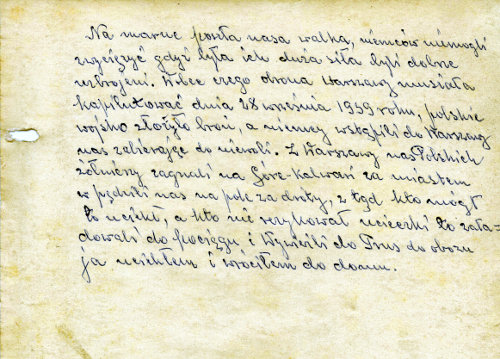 Na marne poszła nasa walka, niemców niemogli
zwyciężyć gdyż była ich duża siła byli dobrze
uzbrojeni. Wbec czego obrona Warszawy musiała
kapitutować dnia 28 września 1939 roku, polskie
wojsko złożyło broń, a niemcy wstąpili do Warszawy
nas zabierając do niewoli. Z Warszawy nas Polskich
żołnierzy zagnali na Górę-Kalwari za miastem
wpędzili nas na pole za druty, z tąd kto mógł
to uciekł, a kto nie ryzykował ucieczki to zała=
dowali do pociągu i wywieźli do Prus do obozu
ja uciekłem i wróciłem do domu.